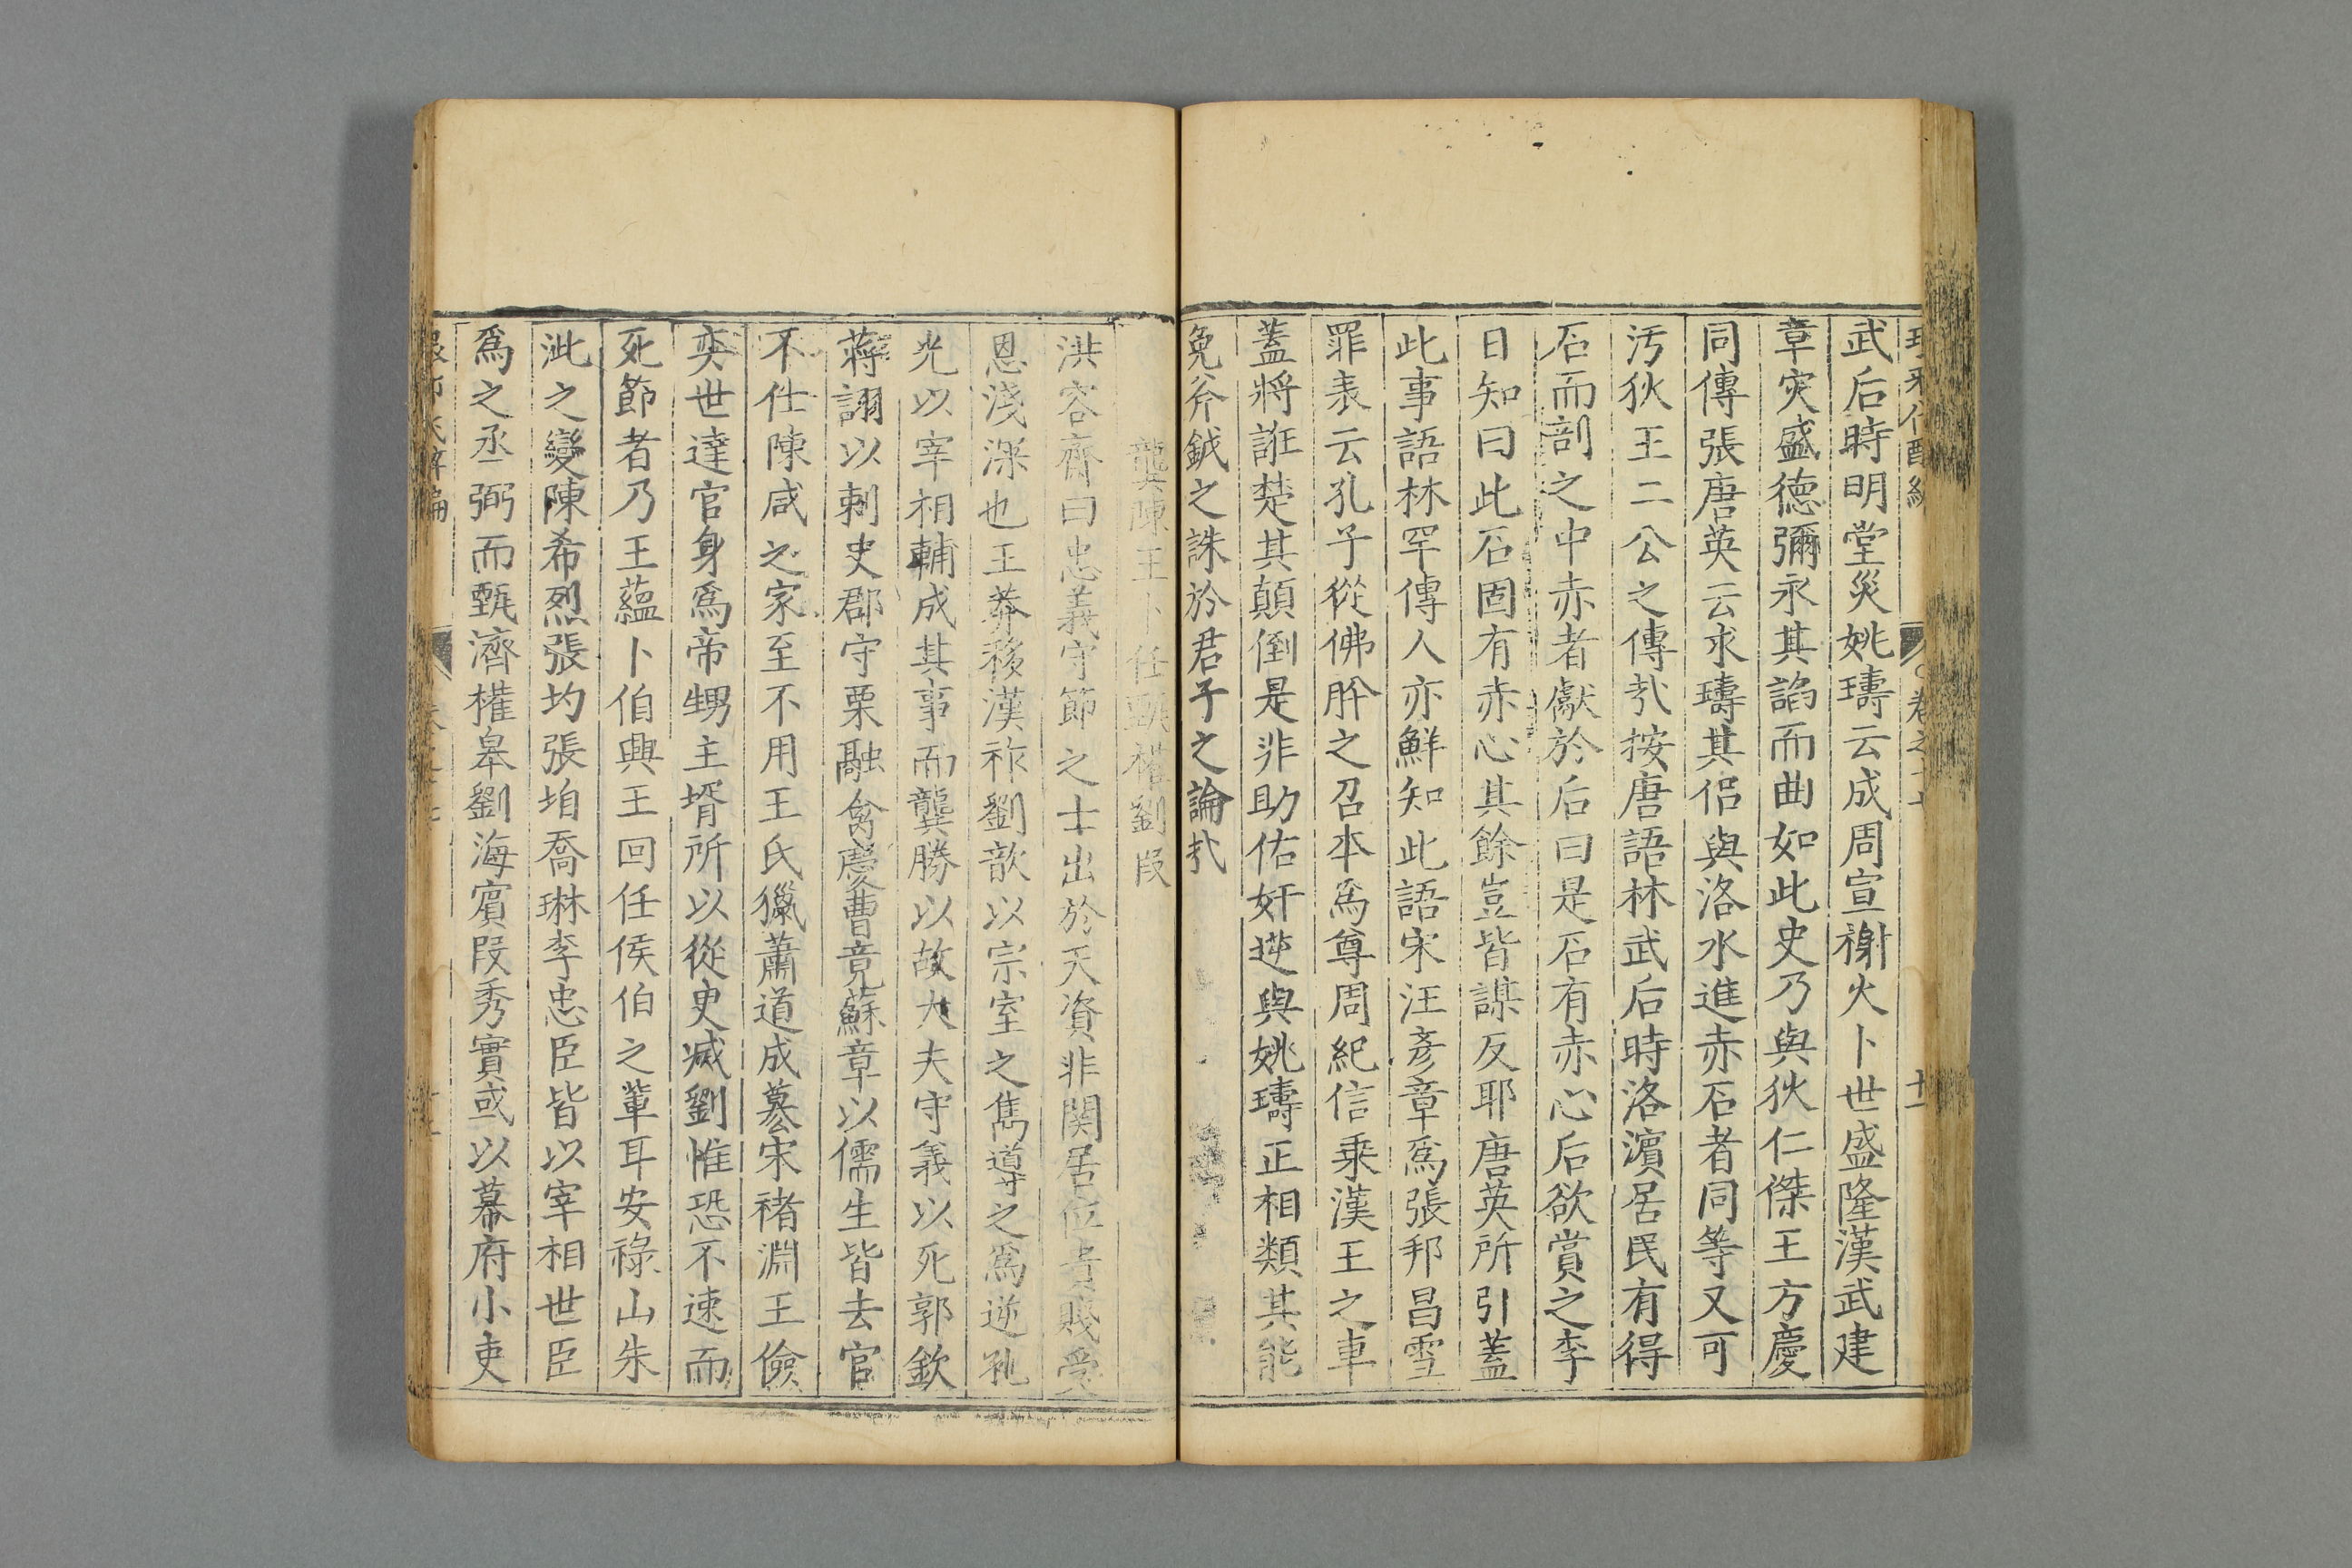 武后時明堂災姚璹云成周宣榭火卜世盛隆漢武建
章灾盛德彌永其諂而曲如此史乃與狄仁傑王方慶
同傳張唐英云求璹其侣與洛水進赤石者同等又可
汚狄王二公之傳㢤按唐語林武后時洛濵居民有得
石而剖之中赤者獻於后曰是石有赤心后欲賞之李
日知曰此石固有赤心其餘豈皆謀反耶唐英所引蓋
此事語林罕傳人亦鮮知此語宋汪彥章爲張邦昌雪
罪表云孔子從佛肸之召本爲尊周紀信乘漢王之車
蓋將誑楚其顛倒是非助佑奸逆與姚璹正相類其能
免斧鉞之誅於君子之論㢤
龔陳王卜任甄權劉段
洪容齊曰忠義守節之士出於天資非関居位貴賤受
恩淺深也王莽移漢祚劉歆以宗室之雋導之爲逆孔
光以宰相輔成其事而龔勝以故大夫守義以死郭欽
蔣詡以刺史郡守栗融禽慶曹竟蘇章以儒生皆去官
不仕陳咸之家至不用王氏獵蕭道成簒宋褚淵王儉
奕世達官身爲帝甥主壻所以從臾滅劉惟恐不速而
死節者乃王蘊卜伯興王回任侯伯之輩耳安祿山朱
泚之變陳希烈張均張垍喬琳李忠臣皆以宰相世臣
爲之丞弼而甄濟權皋劉海濱段秀實或以幕府小吏